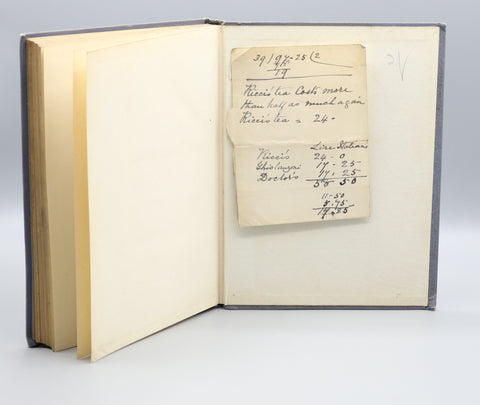 39 | 97 - 25 ( 2
78
19
Ricci's tea Costs more
than half as much again
Ricci's tea = 24 -
Lire Italians
Ricci's 24 - 0
Ghislanzoni 17 - 25
Doctor's 17 . 25
58 50
11 - 50
5 . 75
17 . 25